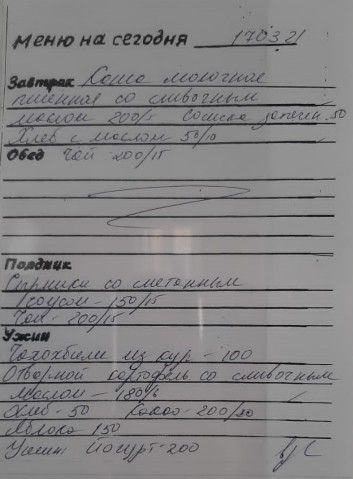 Меню на сегодня 170321
Завтрак Каша молочная
пшенная со сливочным
маслом 200/5 Сосиска запечен. 50
Хлеб с маслом 50/10
Обед Чай 200/15
Полдник
Сырники со сметанным
соусом - 150/15
Чай - 200/15
Ужин
Чахохбили из кур - 100
Отварной картофель со сливочным
маслом - 180/6
Хлеб - 50 Какао - 200/20
Яблоко 150
Ужин Йогурт - 200